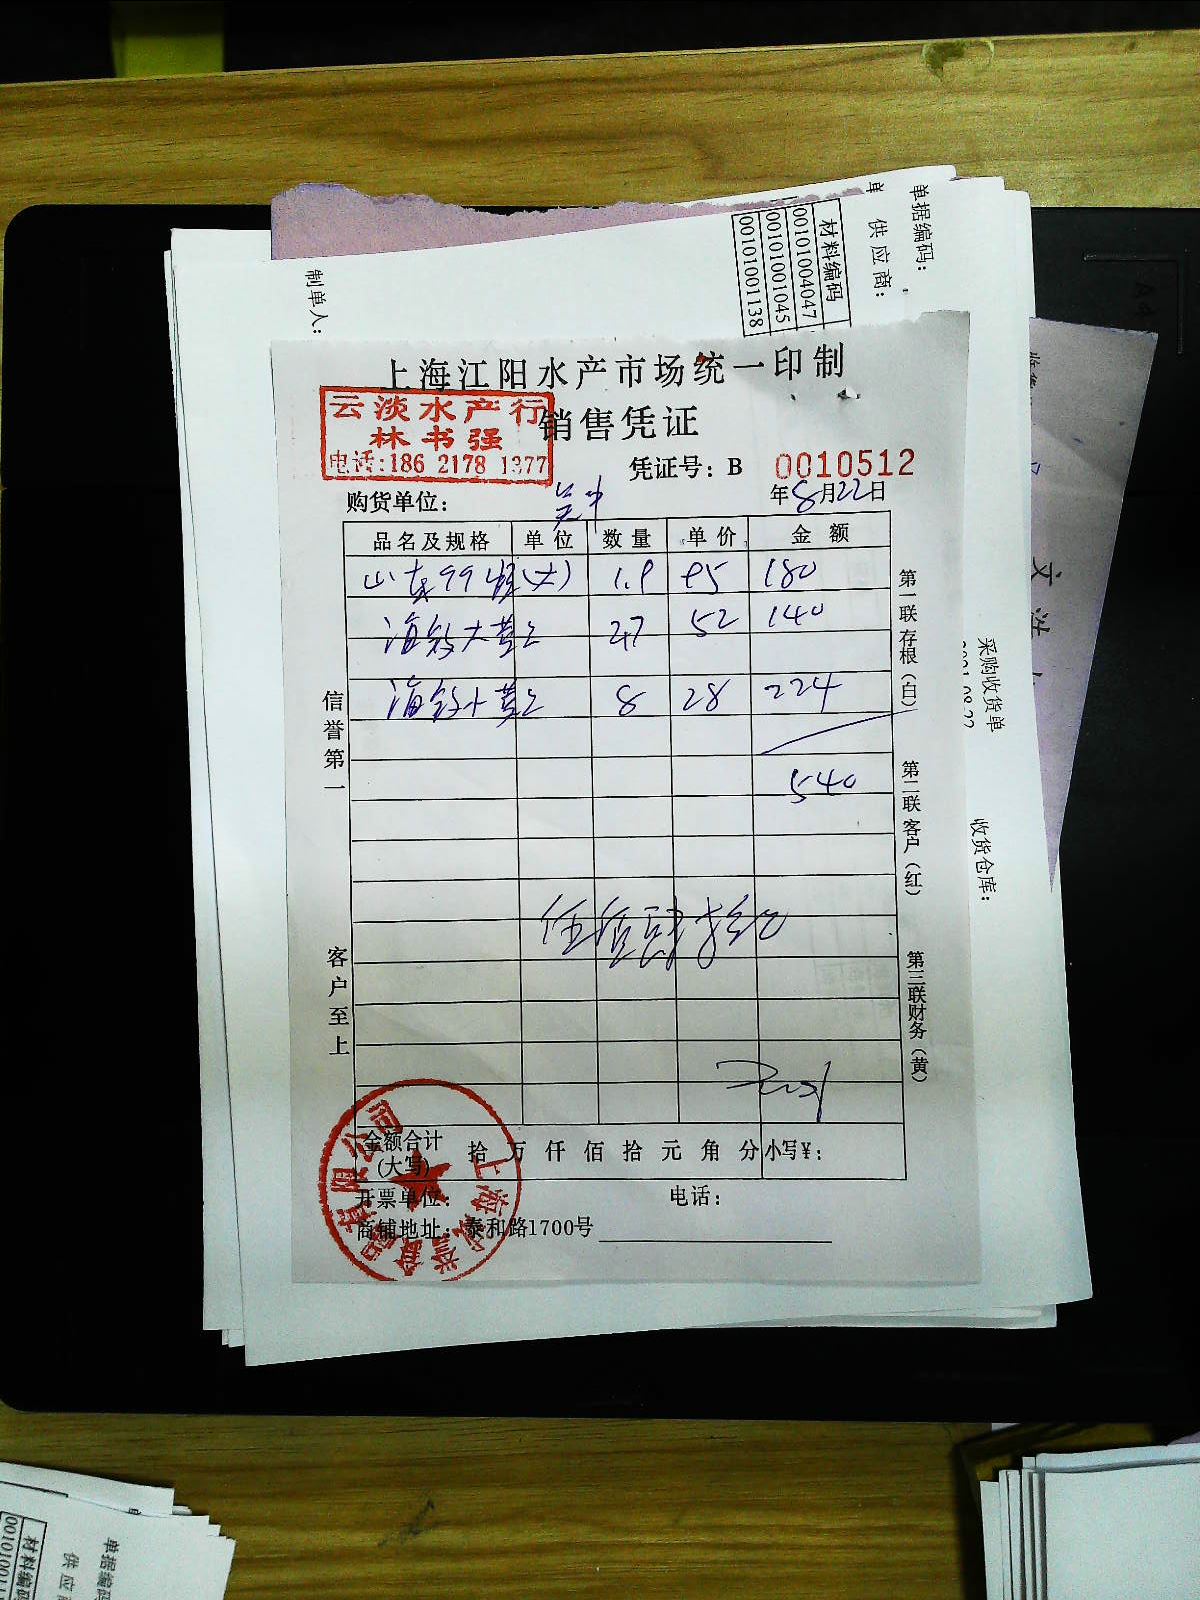 单据编码：
供应商：
材料编码
00101004047
00101001045
00101001138
制单人：
上海江阳水产市场统一印制
云淡水产行
林书强
电话:186 2178 1377
销售凭证
凭证号：B 0010512
购货单位：
年8月22日
品名及规格 单位 数量 单价 金额
山东99 (大) 1.9 95 180
海 大黄 2.7 52 140
海 小黄 8 28 224
540
伍佰肆拾元
信誉第一
客户至上
第一联存根（白）
第二联客户（红）
第三联财务（黄）
金额合计(大写) 拾 万 仟 佰 拾 元 角 分 小写¥：
开票单位：
电话：
商铺地址：泰和路1700号
有限公司
上海
采购收货单
收货仓库：
单据编码
供应
材料编码